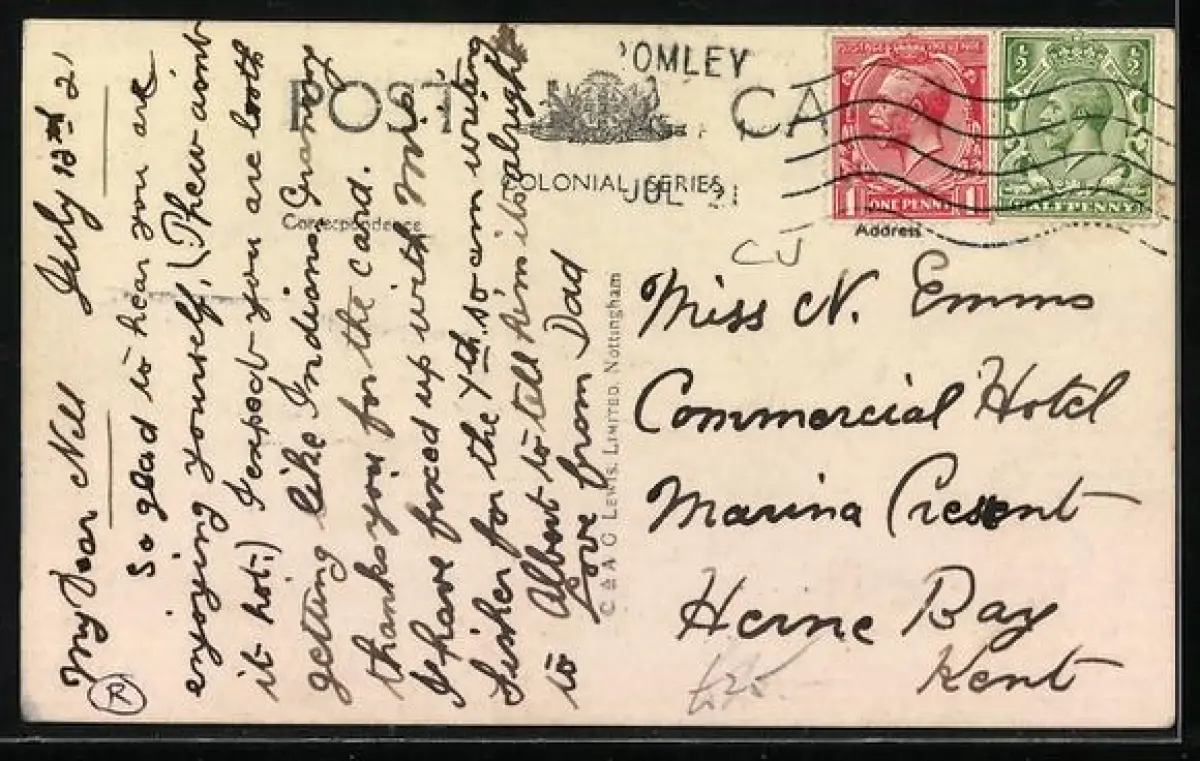 POST CA
'OMLEY
JUL 21
COLONIAL SERIES
Correspondence
Address
ONE PENNY
1 1
½ ½
HALFPENNY
CJ
My Dear Nell July 13th 21
So glad to hear you are
enjoying yourself, (Phew aint
it hot.) I expect you are both
getting like Indians, Granny
thanks you for the card.
I have fixed up with Mrs
Fisher for the 7th. so am writing
to Albert to tell him its alright
Love from Dad
C & A G LEWIS. LIMITED. Nottingham
Miss N. Emms
Commercial Hotel
Marina Cresent
Herne Bay
Kent
£25
R